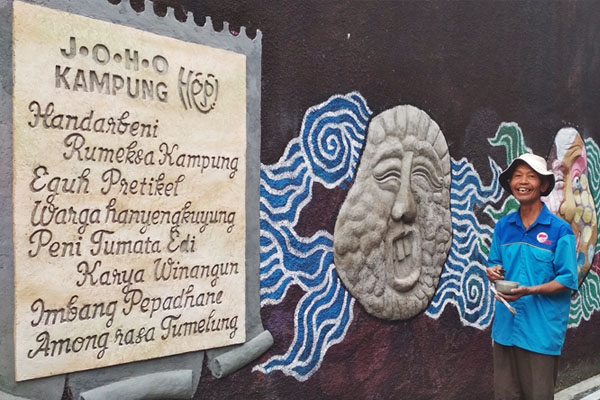 J·O·H·O
KAMPUNG Hepi
Handarbeni
Rumeksa Kampung
Eguh Pretikel
Warga hanyengkuyung
Peni Tumata Edi
Karya Winangun
Imbang Pepadhane
Among rasa Tumelung